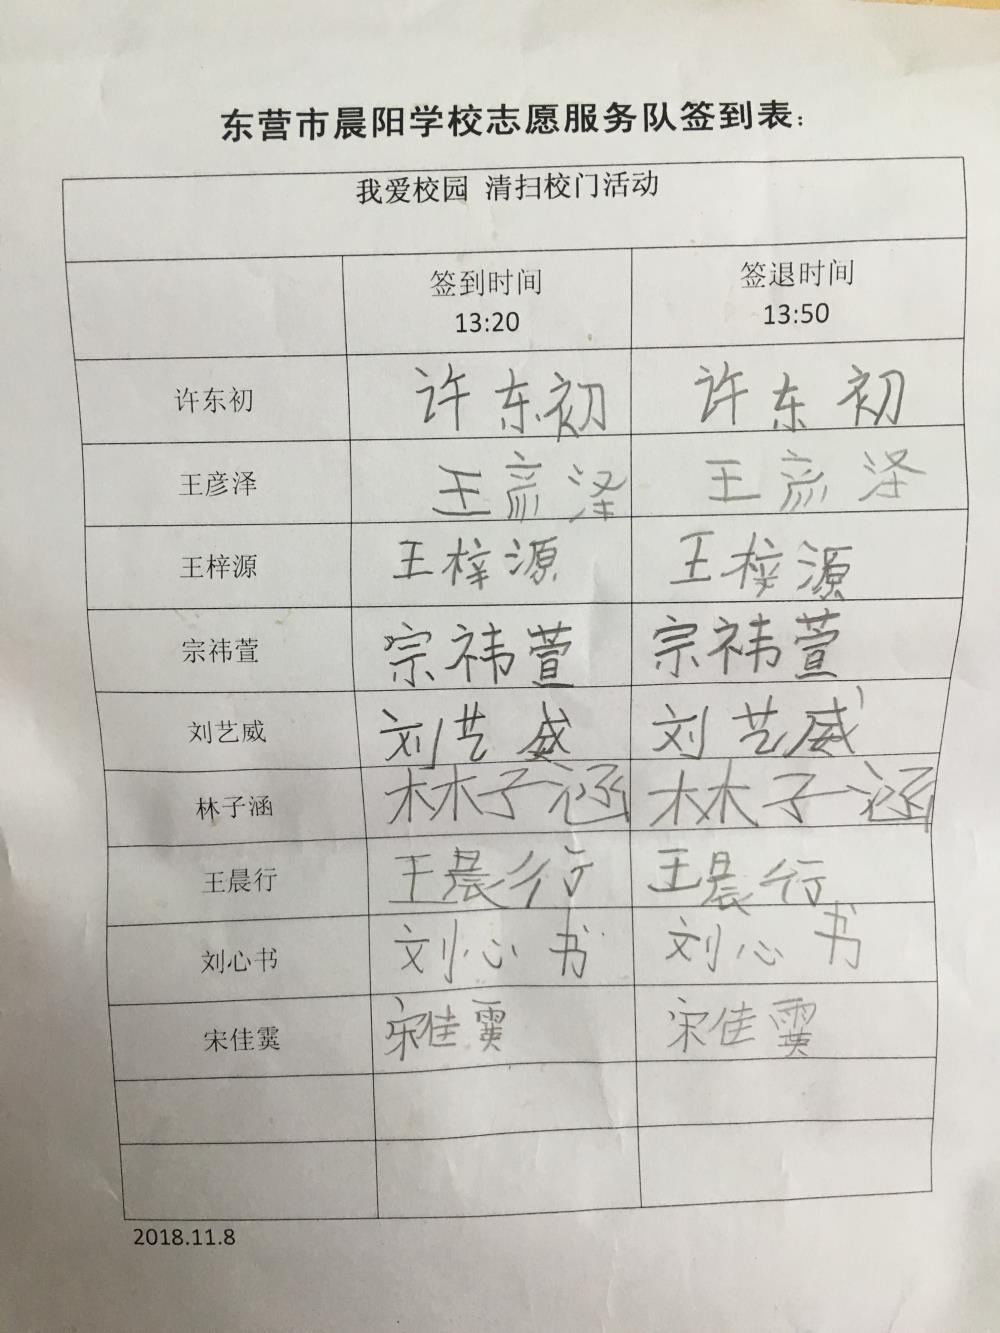 东营市晨阳学校志愿服务队签到表：
我爱校园 清扫校门活动
签到时间 签退时间
13:20 13:50
许东初 许东初 许东初
王彦泽 王彦泽 王彦泽
王梓源 王梓源 王梓源
宗祎萱 宗祎萱 宗祎萱
刘艺威 刘艺威 刘艺威
林子涵 林子涵 林子涵
王晨行 王晨行 王晨行
刘心书 刘心书 刘心书
宋佳霙 宋佳霙 宋佳霙
2018.11.8